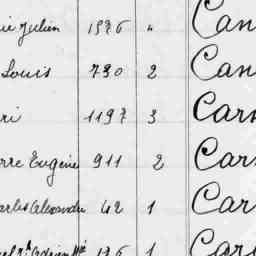 Julien 1926 " Can
Louis 730 2 Can
ri 1197 3 Car
rre Eugène 911 2 Car
arles Alexandre 42 1 Car
1 Car